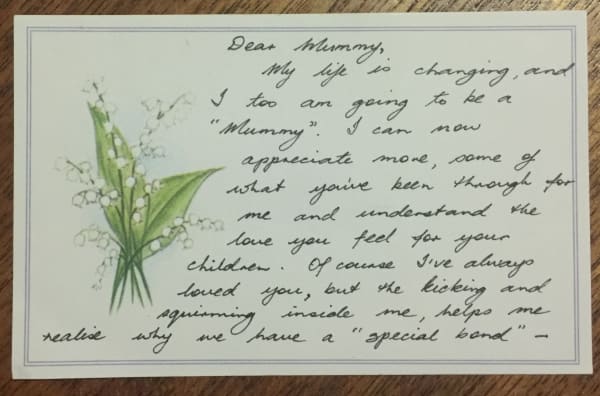 Dear Mummy,
My life is changing, and
I too am going to be a
"Mummy". I can now
appreciate more, some of
what you've been through for
me and understand the
love you feel for your
children. Of course I've always
loved you, but the kicking and
squirming inside me, helps me
realise why we have a "special bond" –